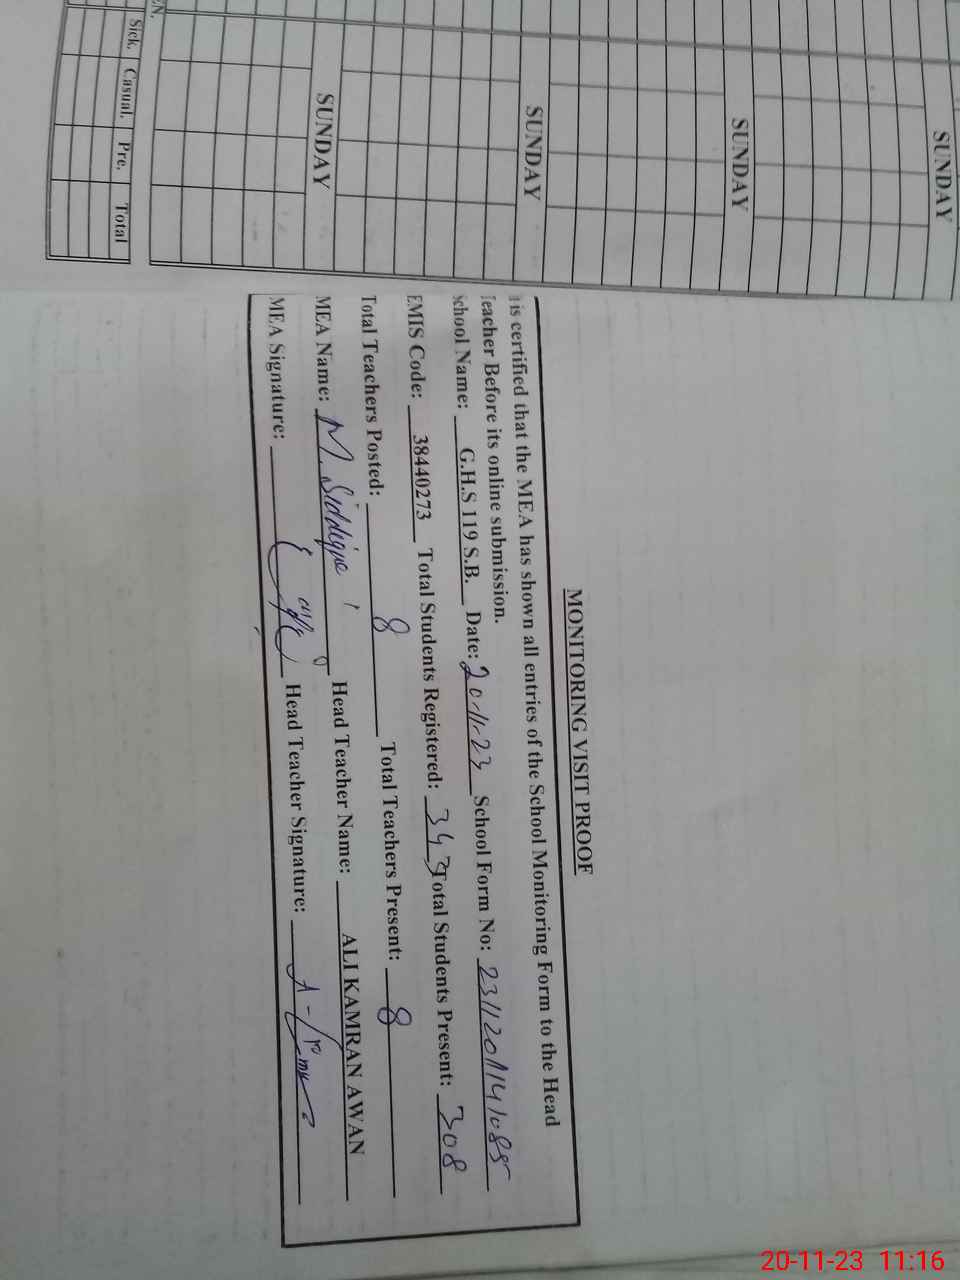 SUNDAY
SUNDAY
SUNDAY
SUNDAY
Sick. Casual. Pre. Total
MONITORING VISIT PROOF
is certified that the MEA has shown all entries of the School Monitoring Form to the Head
Teacher Before its online submission.
School Name: G.H.S 119 S.B. Date: 20-11-23 School Form No:
EMIS Code: 38440273 Total Students Registered: 343 Total Students Present: 308
Total Teachers Posted: 8 Total Teachers Present: 8
MEA Name: M. Siddique Head Teacher Name: ALI KAMRAN AWAN
MEA Signature: Head Teacher Signature:
20-11-23 11:16